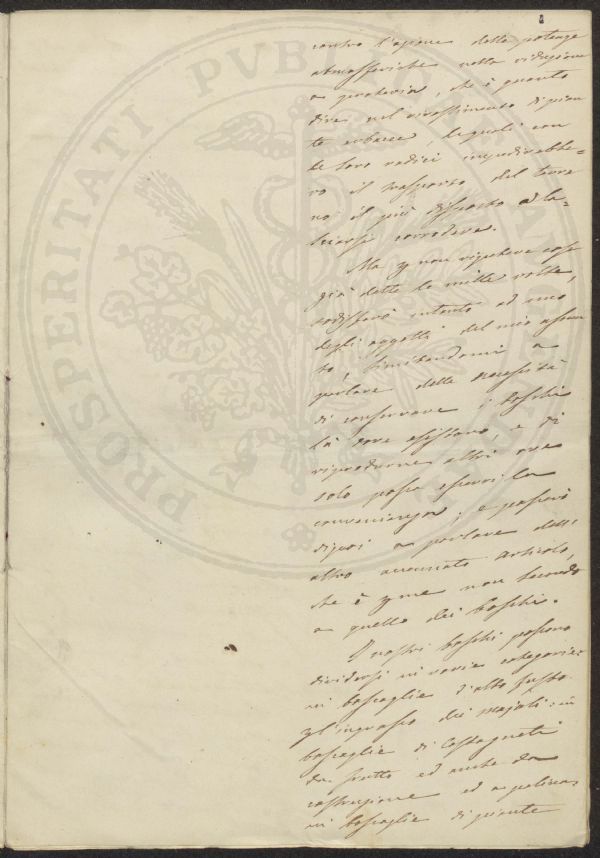 contro l'azione delle potenze
atmosferiche nella riduzione
a prateria, che è quanto
dire nel rivestimento di pian
te erbacee, le quali con
le loro radici impedirebbe=
ro il trasporto del terre
no il più disposto a la=
sciarsi corrodere.
Ma per non ripetere cose
già dette le mille volte,
sodisferò intento ad uno
degli oggetti del mio assun
to, limitandomi a
parlare della necessità
di conservare i boschi
là dove esistono, e di
riprodurne altri ove
solo possa esservi la
convenienza; e passerò
di poi a parlare dell'
altro accennato articolo,
che è per me non secondo
a quello dei boschi.
I nostri boschi possono
dividersi in varie categorie:
in boscaglie d'alto fusto
per l'ingrasso dei majali: in
boscaglie di Castagneti
da frutto ed anche da
costruzione ed a palina,
in boscaglie di piante
PROSPERITATI PVBLICAE AVGENDAE